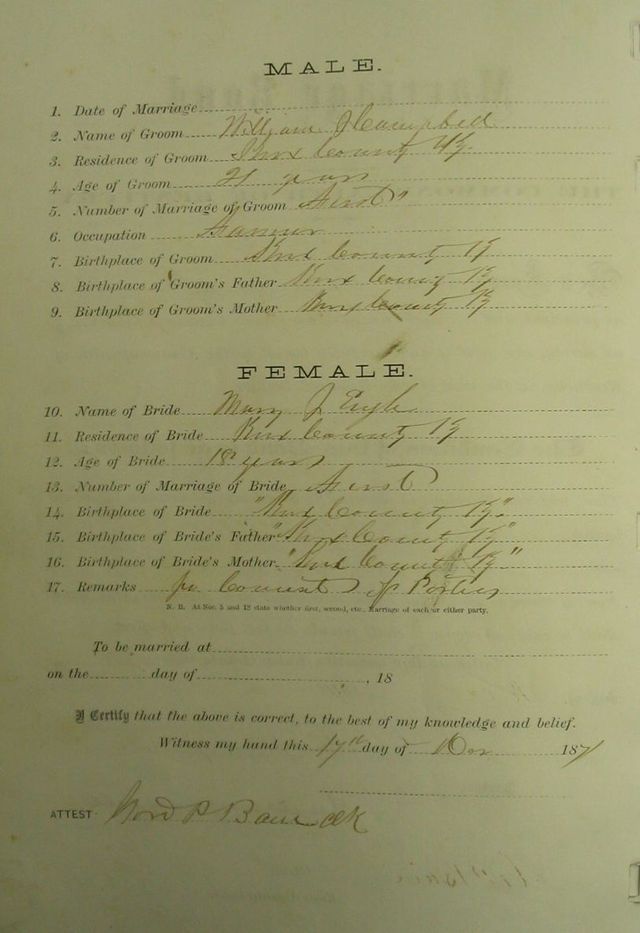 MALE.
1. Date of Marriage
2. Name of Groom William J Campbell
3. Residence of Groom Knox County Ky
4. Age of Groom 21 years
5. Number of Marriage of Groom First
6. Occupation Farmer
7. Birthplace of Groom Knox County Ky
8. Birthplace of Groom's Father Knox County Ky
9. Birthplace of Groom's Mother Knox County Ky
FEMALE.
10. Name of Bride Mary J
11. Residence of Bride Knox County Ky
12. Age of Bride 18 years
13. Number of Marriage of Bride First
14. Birthplace of Bride "Knox County Ky"
15. Birthplace of Bride's Father "Knox County Ky"
16. Birthplace of Bride's Mother "Knox County Ky"
17. Remarks by Consent of Parties
N. B. At Nos. 5 and 13 state whether first, second, etc., Marriage of each or either party.
To be married at
on the day of , 18
I Certify that the above is correct, to the best of my knowledge and belief.
Witness my hand this 17th day of Nov 1871
ATTEST: